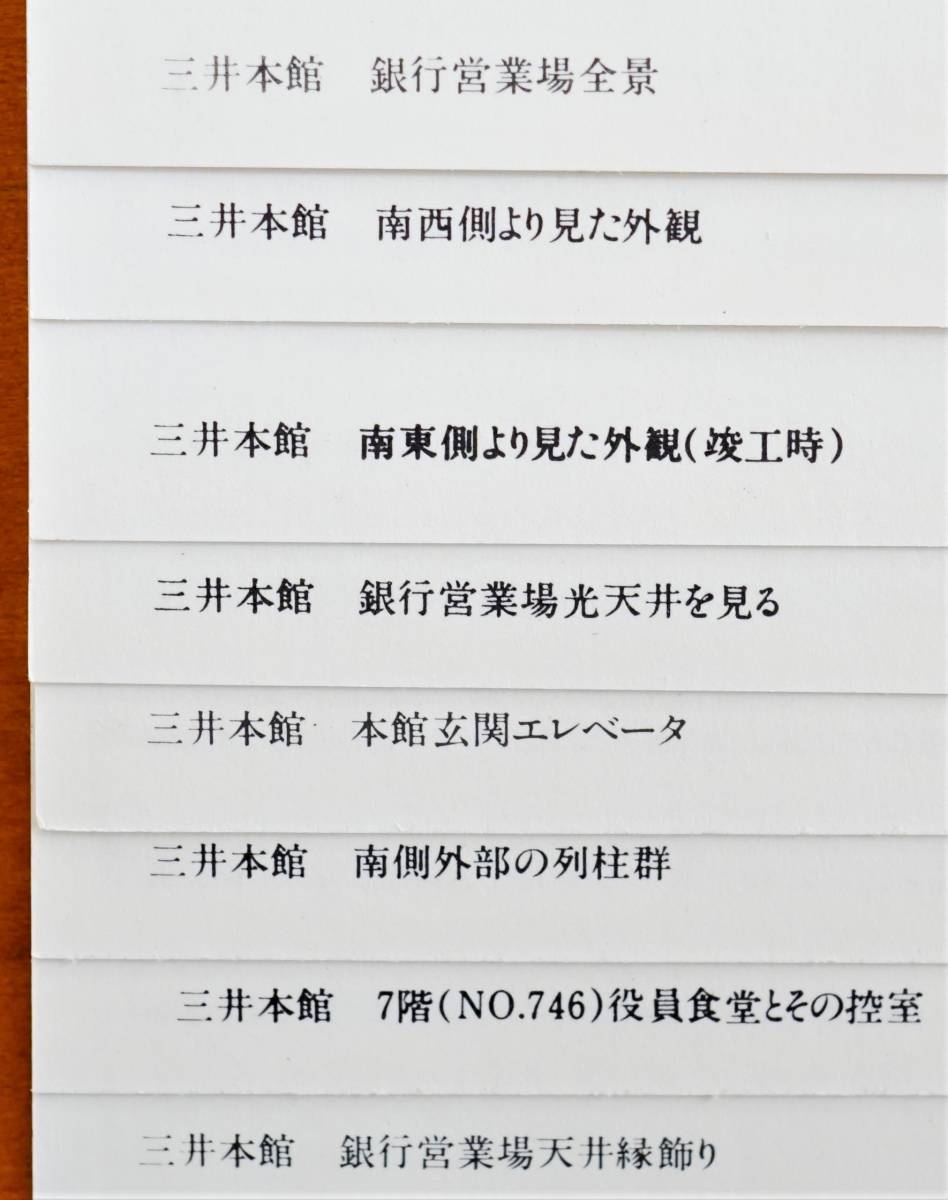 三井本館　銀行営業場全景
三井本館　南西側より見た外観
三井本館　南東側より見た外観(竣工時)
三井本館　銀行営業場光天井を見る
三井本館　本館玄関エレベータ
三井本館　南側外部の列柱群
三井本館　7階(NO.746)役員食堂とその控室
三井本館　銀行営業場天井縁飾り